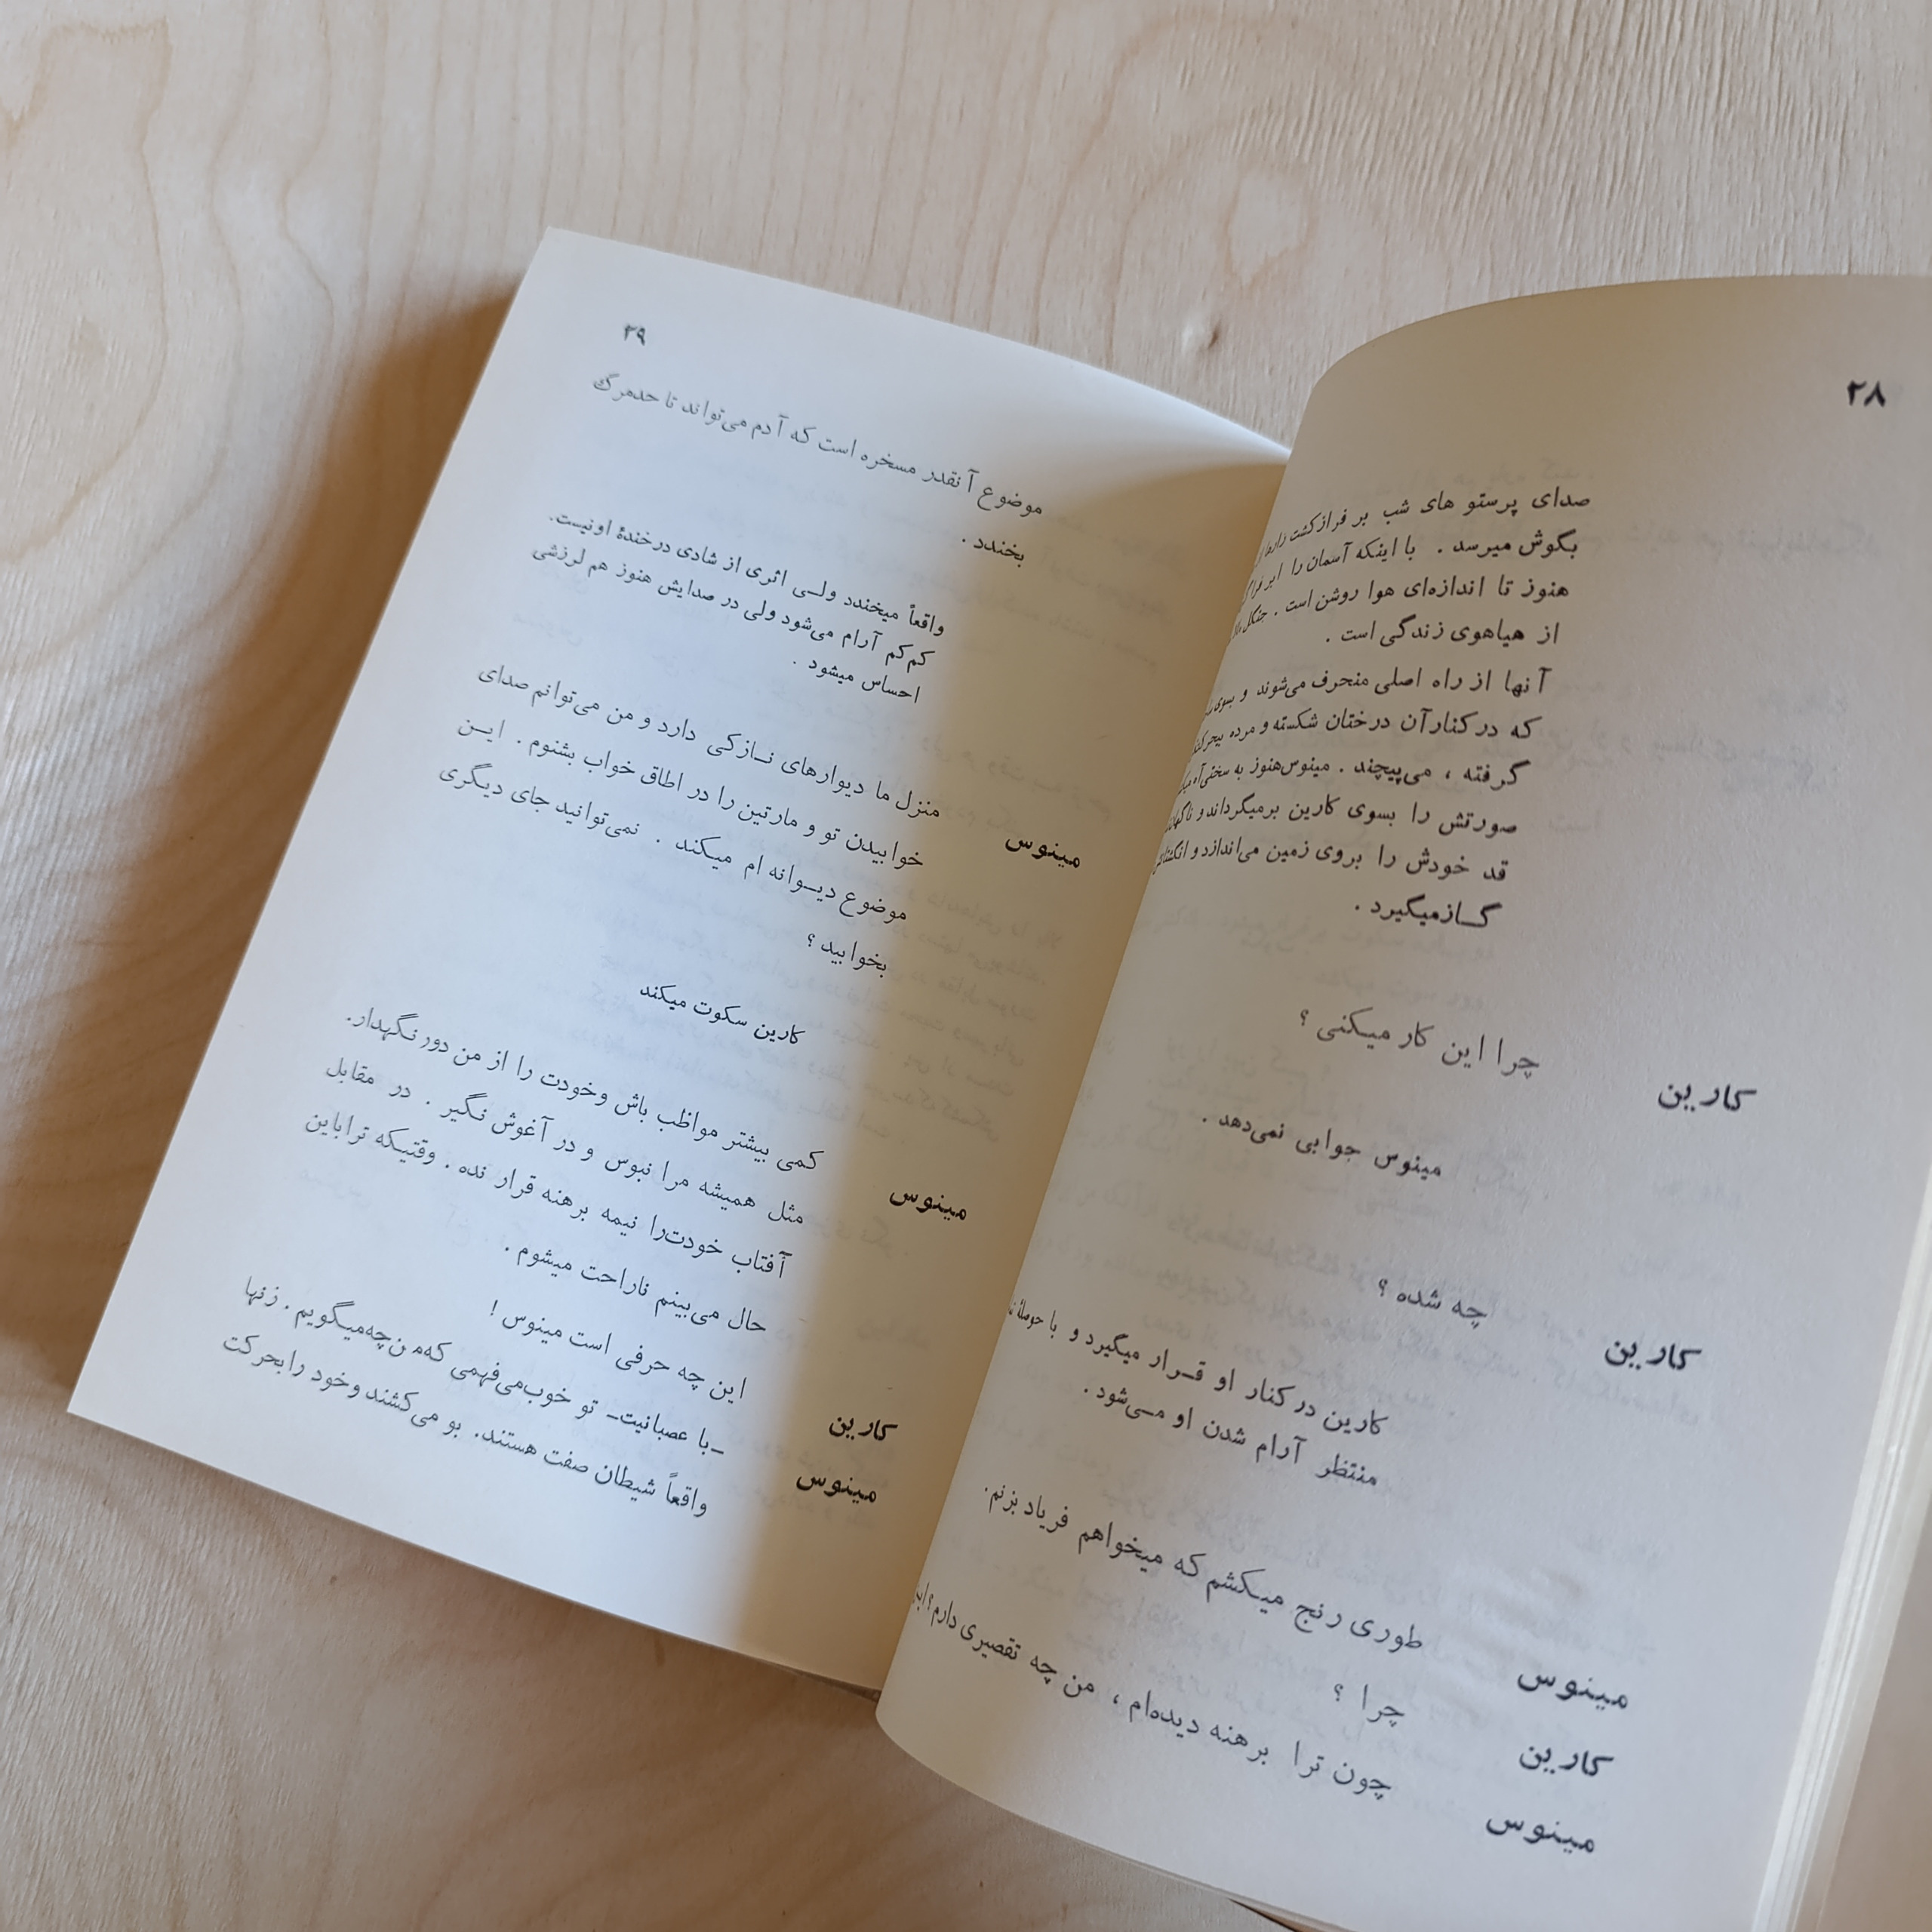 ۲۸
صدای پرستو های شب بر فراز کشت زارها
بگوش میرسد . با اینکه آسمان را ابر
هنوز تا اندازه‌ای هوا روشن است . جنگل
از هیاهوی زندگی است .
آنها از راه اصلی منحرف می‌شوند و بسوی
که در کنار آن درختان شکسته و مرده
گرفته ، می‌پیچند . مینوس هنوز به سختی
صورتش را بسوی کارین برمیگرداند و
قد خودش را بروی زمین می‌اندازد و
گـازمیگیرد .
کارین چرا این کار میکنی ؟
مینوس جوابی نمی‌دهد .
کارین چه شده ؟
کارین در کنار او قـرار میگیرد و با
منتظر آرام شدن او مـی‌شود .
مینوس طوری رنج میـکشم که میخواهم فریاد بزنم.
کارین چرا ؟
مینوس چون ترا برهنه دیده‌ام ، من چه تقصیری دارم؟
۲۹
موضوع آنقدر مسخره است که آدم می‌تواند تا حدمرگ
بخندد .
واقعاً میخندد ولـی اثری از شادی درخندهٔ اونیست.
کم‌کم آرام می‌شود ولی در صدایش هنوز هم لرزشی
احساس میشود .
مینوس منزل ما دیوارهای نـازکی دارد و من می‌توانم صدای
خوابیدن تو و مارتین را در اطاق خواب بشنوم . ایـن
موضوع دیـوانه ام میـکند . نمی‌توانید جای دیـگری
بخوابید ؟
کارین سکوت میکند
مینوس کمی بیشتر مواظب باش وخودت را از من دور نـگهدار.
مثل همیشه مرا نبوس و در آغوش نـگیر . در مقابل
آفتاب خودت‌را نیمه برهنه قرار نده . وقتیـکه تراباین
حال می‌بینم ناراحت میشوم .
کارین این چه حرفی است مینوس !
مینوس ـ با عصبانیت ـ تو خوب‌می‌فهمی که‌من‌چه‌میـگویم . زنها
واقعاً شیطان صفت هستند. بو می‌کشند وخود را بحرکت